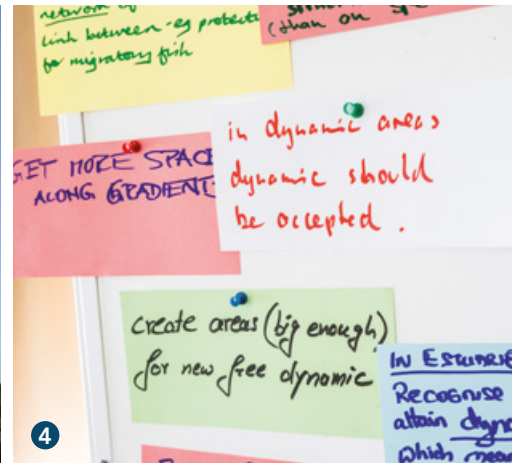 network of
link between - eg protect
for migratory fish
(than on spe
GET MORE SPACE
ALONG GRADIENT
in dynamic areas
dynamic should
be accepted.
create areas (big enough)
for new free dynamic
IN ESTUARIE
RECOGNISE
attain dyna
which mean
4